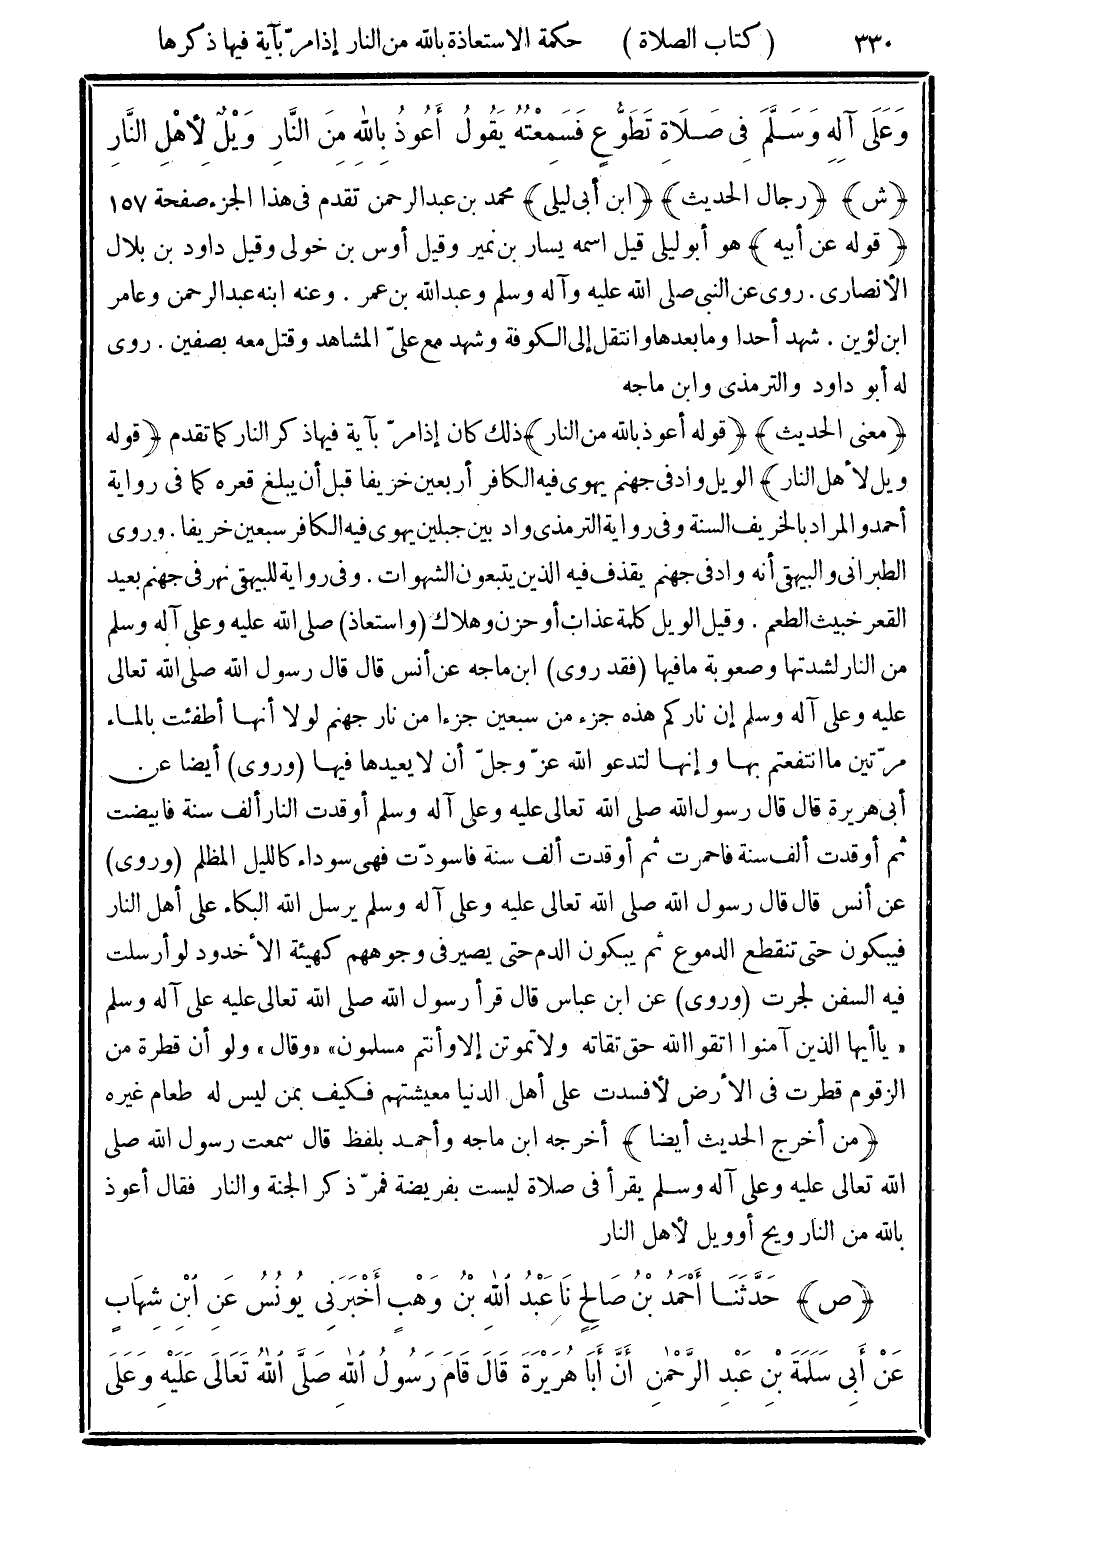 ٣٣٠ ( كتاب الصلاة ) حكمة الاستعاذة بالله من النار إذا مرّ بآية فيها ذكرها
وَعَلَى آلِهِ وَسَلَّمَ فِى صَلَاةِ تَطَوُّعٍ فَسَمِعْتُهُ يَقُولُ أَعُوذُ بِاللهِ مِنَ النَّارِ وَيْلٌ لِأَهْلِ النَّارِ
﴿ش﴾ ﴿رجال الحديث﴾ ﴿ابن أبى ليلى﴾ محمد بن عبد الرحمن تقدم فى هذا الجزء صفحة ١٥٧
﴿قوله عن أبيه﴾ هو أبو ليلى قيل اسمه يسار بن نمير وقيل أوس بن خولى وقيل داود بن بلال
الأنصارى . روى عن النبى صلى الله عليه وآله وسلم وعبد الله بن عمر . وعنه ابنه عبد الرحمن وعامر
ابن لؤين . شهد أحدا وما بعدها وانتقل إلى الكوفة وشهد مع علىّ المشاهد وقتل معه بصفين . روى
له أبو داود والترمذى وابن ماجه
﴿معنى الحديث﴾ ﴿قوله أعوذ بالله من النار﴾ ذلك كان إذا مرّ بآية فيها ذكر النار كما تقدم ﴿قوله
ويل لأهل النار﴾ الويل واد فى جهنم يهوى فيه الكافر أربعين خريفا قبل أن يبلغ قعره كما فى رواية
أحمد والمراد بالخريف السنة وفى رواية الترمذى واد بين جبلين يهوى فيه الكافر سبعين خريفا . وروى
الطبرانى والبيهقى أنه واد فى جهنم يقذف فيه الذين يتبعون الشهوات . وفى رواية للبيهقى نهر فى جهنم بعيد
القعر خبيث الطعم . وقيل الويل كلمة عذاب أو حزن وهلاك (واستعاذ) صلى الله عليه وعلى آله وسلم
من النار لشدتها وصعوبة ما فيها (فقد روى) ابن ماجه عن أنس قال قال رسول الله صلى الله تعالى
عليه وعلى آله وسلم إن ناركم هذه جزء من سبعين جزءا من نار جهنم لولا أنها أطفئت بالماء
مرّتين ما انتفعتم بها وإنها لتدعو الله عزّ وجلّ أن لا يعيدها فيها (وروى) أيضا عن
أبى هريرة قال قال رسول الله صلى الله تعالى عليه وعلى آله وسلم أوقدت النار ألف سنة فابيضت
ثم أوقدت ألف سنة فاحمرت ثم أوقدت ألف سنة فاسودّت فهى سوداء كالليل المظلم (وروى)
عن أنس قال قال رسول الله صلى الله تعالى عليه وعلى آله وسلم يرسل الله البكاء على أهل النار
فيبكون حتى تنقطع الدموع ثم يبكون الدم حتى يصير فى وجوههم كهيئة الأخدود لو أرسلت
فيه السفن لجرت (وروى) عن ابن عباس قال قرأ رسول الله صلى الله تعالى عليه على آله وسلم
« يا أيها الذين آمنوا اتقوا الله حق تقاته ولا تموتن إلا وأنتم مسلمون» «وقال» ولو أن قطرة من
الزقوم قطرت فى الأرض لأفسدت على أهل الدنيا معيشتهم فكيف بمن ليس له طعام غيره
﴿من أخرج الحديث أيضا﴾ أخرجه ابن ماجه وأحمد بلفظ قال سمعت رسول الله صلى
الله تعالى عليه وعلى آله وسلم يقرأ فى صلاة ليست بفريضة فمرّ ذكر الجنة والنار فقال أعوذ
بالله من النار ويح أو ويل لأهل النار
﴿ص﴾ حَدَّثَنَا أَحْمَدُ بْنُ صَالِحٍ نَا عَبْدُ اللهِ بْنُ وَهْبٍ أَخْبَرَنِى يُونُسُ عَنِ ابْنِ شِهَابٍ
عَنْ أَبِى سَلَمَةَ بْنِ عَبْدِ الرَّحْمٰنِ أَنَّ أَبَا هُرَيْرَةَ قَالَ قَامَ رَسُولُ اللهِ صَلَّى اللهُ تَعَالَى عَلَيْهِ وَعَلَى